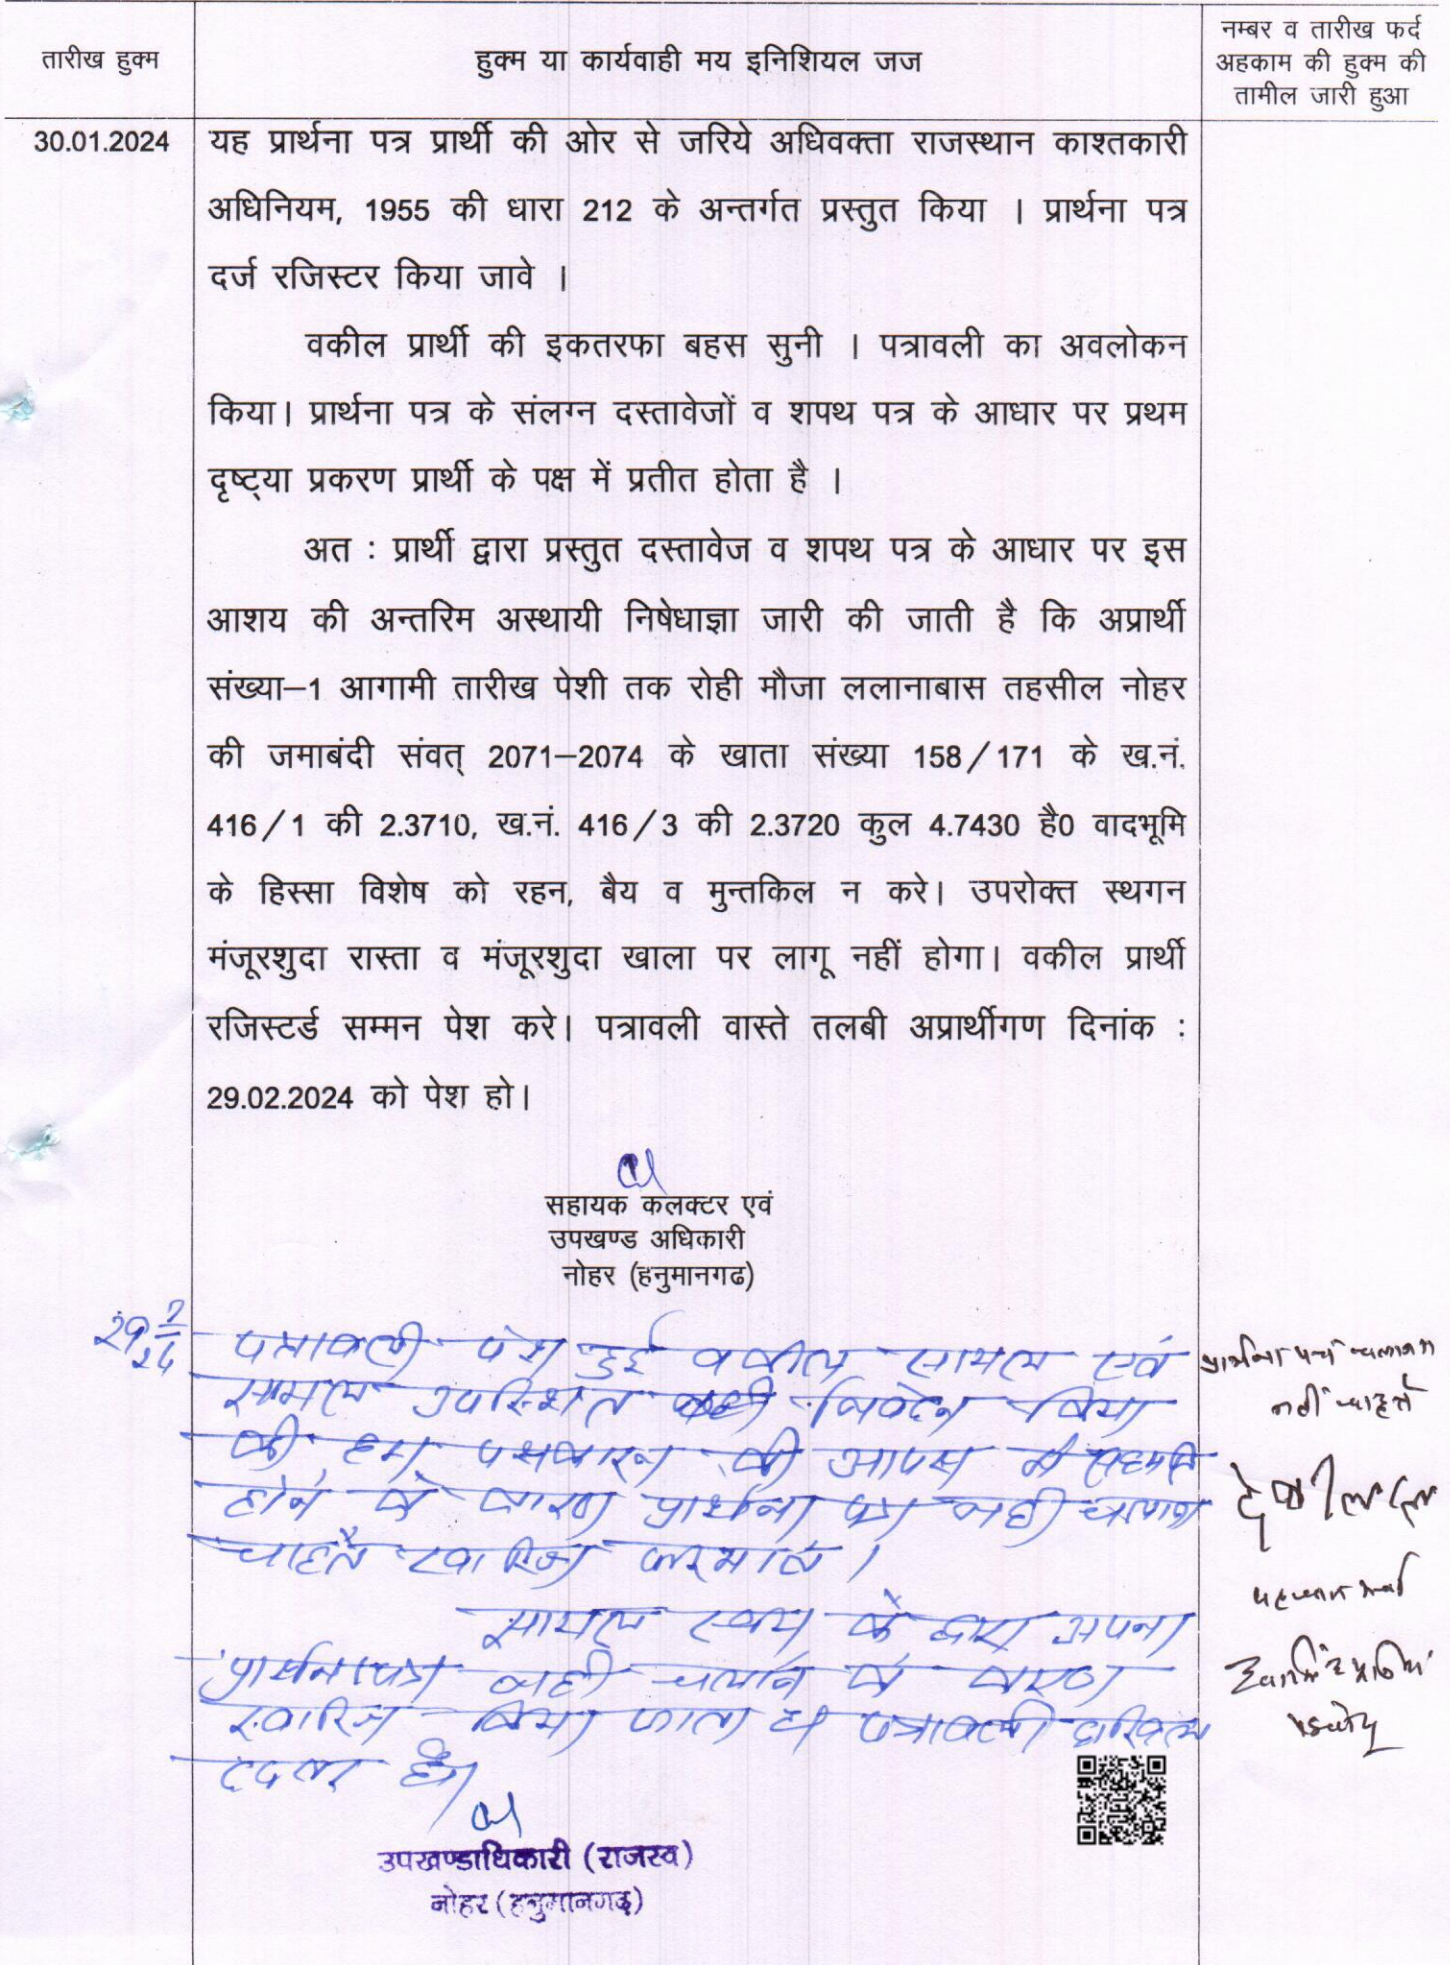 तारीख हुक्म
हुक्म या कार्यवाही मय इनिशियल जज
नम्बर व तारीख फर्द
अहकाम की हुक्म की
तामील जारी हुआ
30.01.2024
यह प्रार्थना पत्र प्रार्थी की ओर से जरिये अधिवक्ता राजस्थान काश्तकारी
अधिनियम, 1955 की धारा 212 के अन्तर्गत प्रस्तुत किया । प्रार्थना पत्र
दर्ज रजिस्टर किया जावे ।
वकील प्रार्थी की इकतरफा बहस सुनी । पत्रावली का अवलोकन
किया। प्रार्थना पत्र के संलग्न दस्तावेजों व शपथ पत्र के आधार पर प्रथम
दृष्ट्या प्रकरण प्रार्थी के पक्ष में प्रतीत होता है ।
अत : प्रार्थी द्वारा प्रस्तुत दस्तावेज व शपथ पत्र के आधार पर इस
आशय की अन्तरिम अस्थायी निषेधाज्ञा जारी की जाती है कि अप्रार्थी
संख्या–1 आगामी तारीख पेशी तक रोही मौजा ललानाबास तहसील नोहर
की जमाबंदी संवत् 2071–2074 के खाता संख्या 158/171 के ख.नं.
416/1 की 2.3710, ख.नं. 416/3 की 2.3720 कुल 4.7430 है0 वादभूमि
के हिस्सा विशेष को रहन, बैय व मुन्तकिल न करे। उपरोक्त स्थगन
मंजूरशुदा रास्ता व मंजूरशुदा खाला पर लागू नहीं होगा। वकील प्रार्थी
रजिस्टर्ड सम्मन पेश करे। पत्रावली वास्ते तलबी अप्रार्थीगण दिनांक :
29.02.2024 को पेश हो।
सहायक कलक्टर एवं
उपखण्ड अधिकारी
नोहर (हनुमानगढ)
पत्रावली पेश हुई वकील सायल एवं
सायल उपस्थित निवेदन किया
की हम पक्षकारन की आपस में सहमति
होने के कारण प्रार्थना पत्र नही चलाना
चाहते खारिज फरमावे ।
सायल स्वयं के द्वारा अपना
प्रार्थना पत्र नही चलाने के कारण
खारिज किया जाता है पत्रावली दाखिल
दफ्तर हो।
प्रार्थना पत्र चलाना
नहीं चाहते
देवीलाल
उपखण्डाधिकारी (राजस्व)
नोहर (हनुमानगढ़)